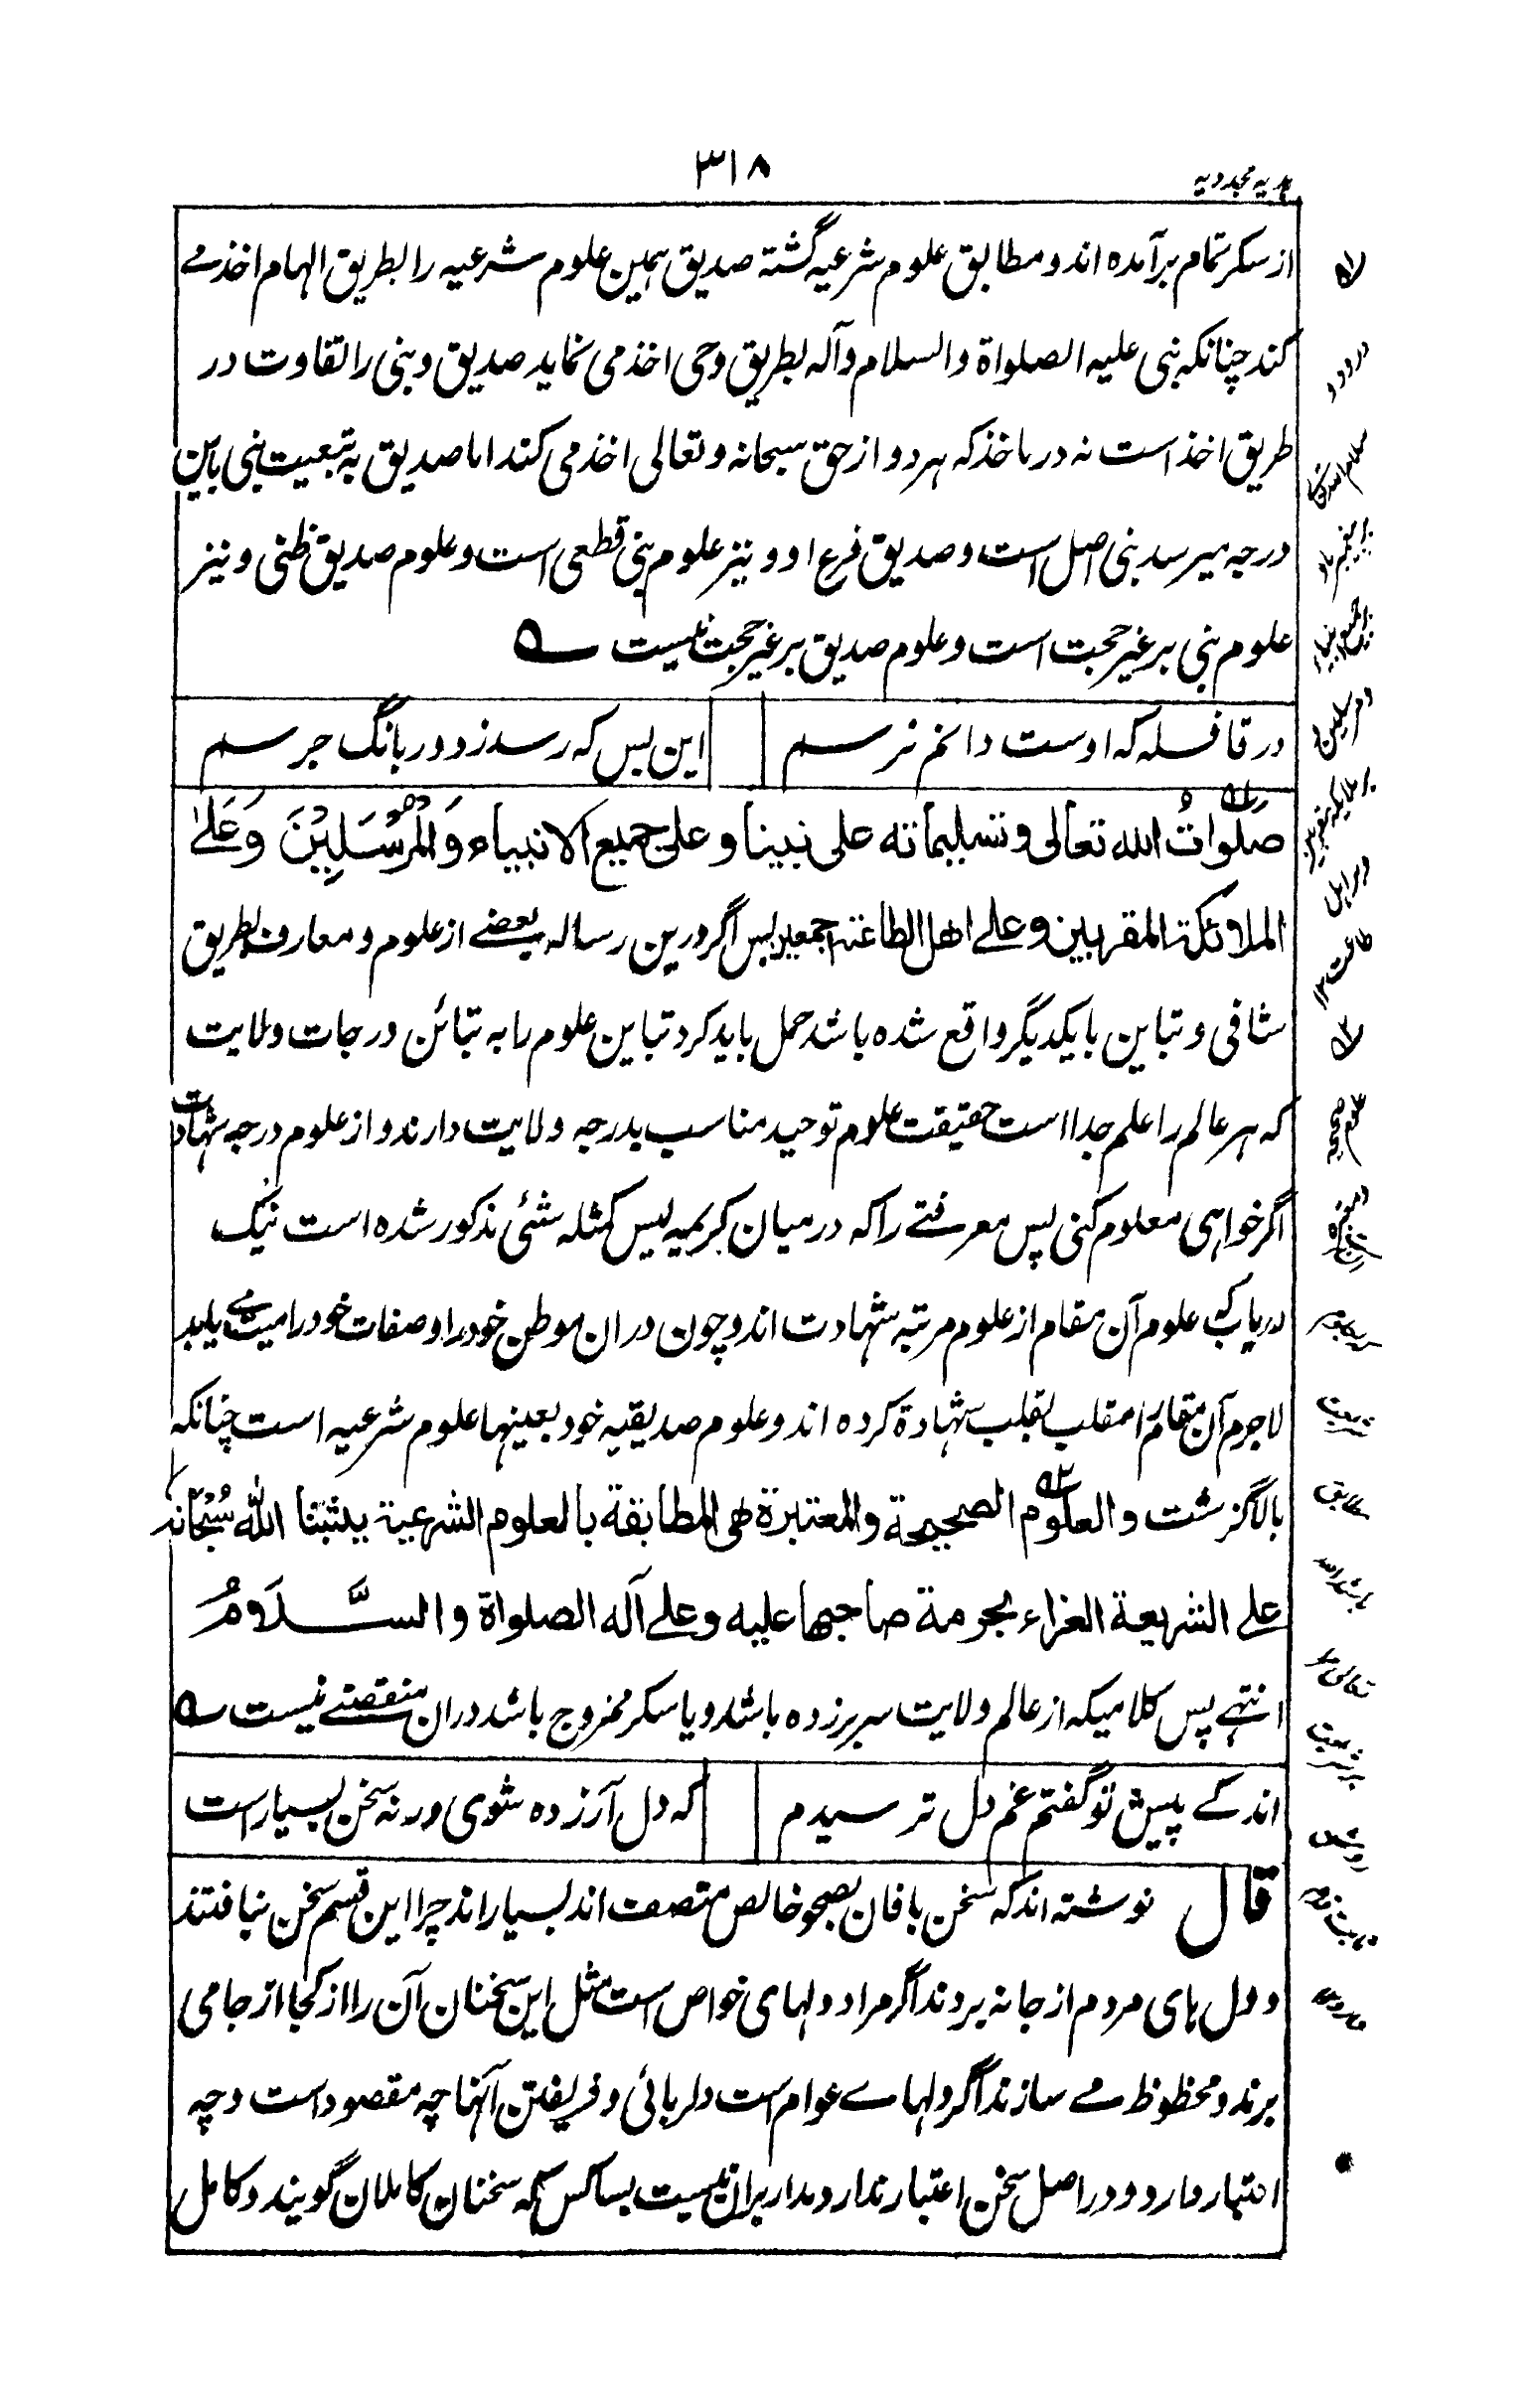 ۳۱۸
ہدیہ مجددیہ
از سکر تمام برآمدہ اند و مطابق علوم شرعیہ گشتہ صدیق ہمین علوم شرعیہ را بطریق الہام اخذ مے
کند چنانکہ نبی علیہ الصلواۃ والسلام وآلہ بطریق وحی اخذ می نماید صدیق و نبی را تفاوت در
طریق اخذ است نہ در ماخذ کہ ہر دو از حق سبحانہ و تعالی اخذ می کنند اما صدیق بہ تبعیت نبی باین
درجہ میرسد نبی اصل است و صدیق فرع او و نیز علوم نبی قطعی است و علوم صدیق ظنی و نیز
علوم نبی بر غیر حجت است و علوم صدیق بر غیر حجت نیست ؎
در قافلہ کہ اوست دانم نرسم
این بس کہ رسد ز دور بانگ جرسم
صلواتُ اللہ تعالی و تسلیماتہ علی نبینا و علی جمیع الانبیاء وَالْمُرْسَلِیْنَ وَعَلیٰ
الملائکۃ المقربین و علے اھل الطاعۃ اجمعین پس اگر درین رسالہ بعضے از علوم و معارف بطریق
تنافی و تباین بایکدیگر واقع شدہ باشد حمل باید کرد تباین علوم را بہ تبائن درجات ولایت
کہ ہر عالم را علم جدا است حقیقت علوم توحید مناسب بدرجہ ولایت دارند و از علوم درجہ شہادت
اگر خواہی معلوم کنی پس معرفتے را کہ در میان کریمہ لیس کمثلہ شئی مذکور شدہ است نیک
دریاب کہ علوم آن مقام از علوم مرتبہ شہادت اند و چون دران موطن خود را و صفات خود را میت مے یابد
لاجرم آن مقام را مقلب بقلب شہادۃ کردہ اند و علوم صدیقیہ خود بعینہا علوم شرعیہ است چنانکہ
بالا گزشت والعلوم الصحیحۃ والمعتبرۃ ھی المطابقۃ بالعلوم الشرعیۃ یثبتنا اللہ سُبْحَانہ
علی الشریعۃ الغراء بحرمۃ صاحبھا علیہ وعلے آلہ الصلواۃ والسَّلَامُ
انتہے پس کلامیکہ از عالم ولایت سر برزدہ باشد و یا سکر ممزوج باشد دران منقصتے نیست ؎
اندکے پیش تو گفتم غم دل ترسیدم
کہ دل آرزدہ شوی ورنہ سخن بسیار است
قال نوشتہ اند کہ سخن بافان بصحو خالص متصف اند بسیار اند چرا این قسم سخن نبافتند
و دل ہای مردم از جا نہ بردند اگر مراد دلہای خواص است مثل این سخنان آن را از کجا از جا می
برند و محظوظ مے سازند اگر دلہاے عوام است دلربائی و فریفتن آنہا چہ مقصود است و چہ
اعتبار دارد و در اصل سخن اعتبار ندارد مدار بران نیست بسا کس کہ سخنان کاملان گویند و کامل
درود
سلام اللہ تعالے
بر پیغمبر ما و
بر جمیع انبیاء
و مرسلین و
بر ملایکہ مقربین
و بر اہل
طاعت ۱۲
علوم صحیحہ
و معتبرہ
شریعت
مطابق
تعالی
بر شریعت
روشن